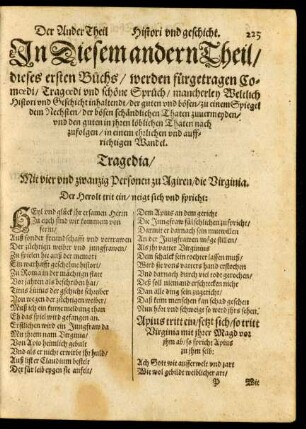 Der Ander Theil Histori vnd geschicht. 225
In Diesem andern Theil/
dieses ersten Buchs/ werden fürgetragen Co-
moedi/ Tragoedi vnd schöne Sprüch/ mancherley Weltlich
Histori vnd Geschicht inhaltende/ der guten vnd bösen/ zu einem Spiegel
dem Nechsten/ der bösen schändtlichen Thaten zuuermeyden/
vnd den guten in jhren löblichen Thaten nach
zufolgen/ in einem ehrlichen vnd auff-
richtigen Wandel.
Tragedia/
Mit vier vnd zwanzig Personen zu Agiren/ die Virginia.
Der Herolt trit ein/ neigt sich vnd spricht:
HEyl vnd glück jhr ersamen Herrn
Zu euch sind wir kommen von
fern/
Auß sonder freundschafft vnd vertrawen
Der züchtigen weiber vnd jungfrawen/
Zu spielen hie auß der memori
Ein warhafft geschehne histori/
Zu Roma in der mächtigen statt
Vor jahren als beschriben hat/
Titus Liuius der geschicht schreiber
Von wegen der züchtigen weiber/
Muß ich ein kurtze meldung than
Eh das spiel wird gefangen an.
Erstlichen wird ein Jungfraw da
Mit jhrem nam Virginia/
Von Apio heimlich gebult
Vnd als er nicht erwirbt jhr huld/
Auß list er Claudium bestelt
Der für leibeygen sie anfelt/
Dem Apius an dem gericht
Die Jungfraw fälschlichen zuspricht/
Damit er darnach sein mutwillen
An der Jungfrawen möge stillen/
Als jhr vatter Virginius
Dem schalck sein tochter lassen muß/
Wird sie von vatters hand erstochen
Vnd darnach durch viel rodt gerochen/
Deß soll niemand erschrecken nicht
Dan als ding sein zugericht/
Daß kein menschen kan schad geschen
Nun hört vnd schweigt so werd jhrs sehen.
Apius tritt ein/ setzt sich/ so tritt
Virginia mit jhrer Magd vor
jhm ab/ so spricht Apius
zu jhm selb:
Ach Gott wie ausserwelt vnd zart
Wie wol gebildt weiblicher art/
P Wie